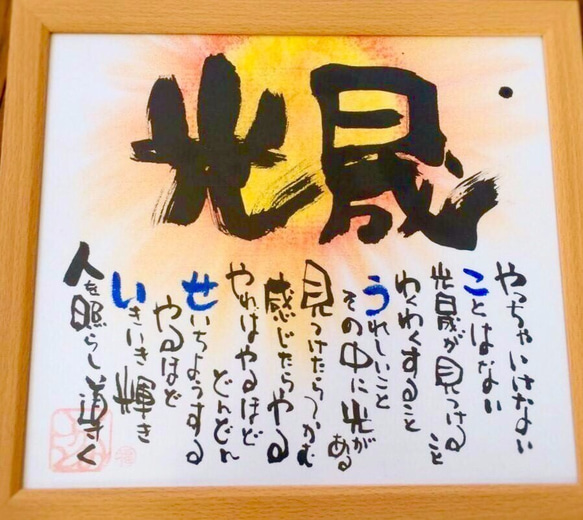 光晟
やっちゃいけない
ことはない
光晟が見つける
こと
わくわくすること
うれしいこと
その中に光が
ある
見つけたらつかむ
感じたらやる
やればやるほど
どんどん
せいちょうする
やるほど
いきいき輝き
人を照らし導く